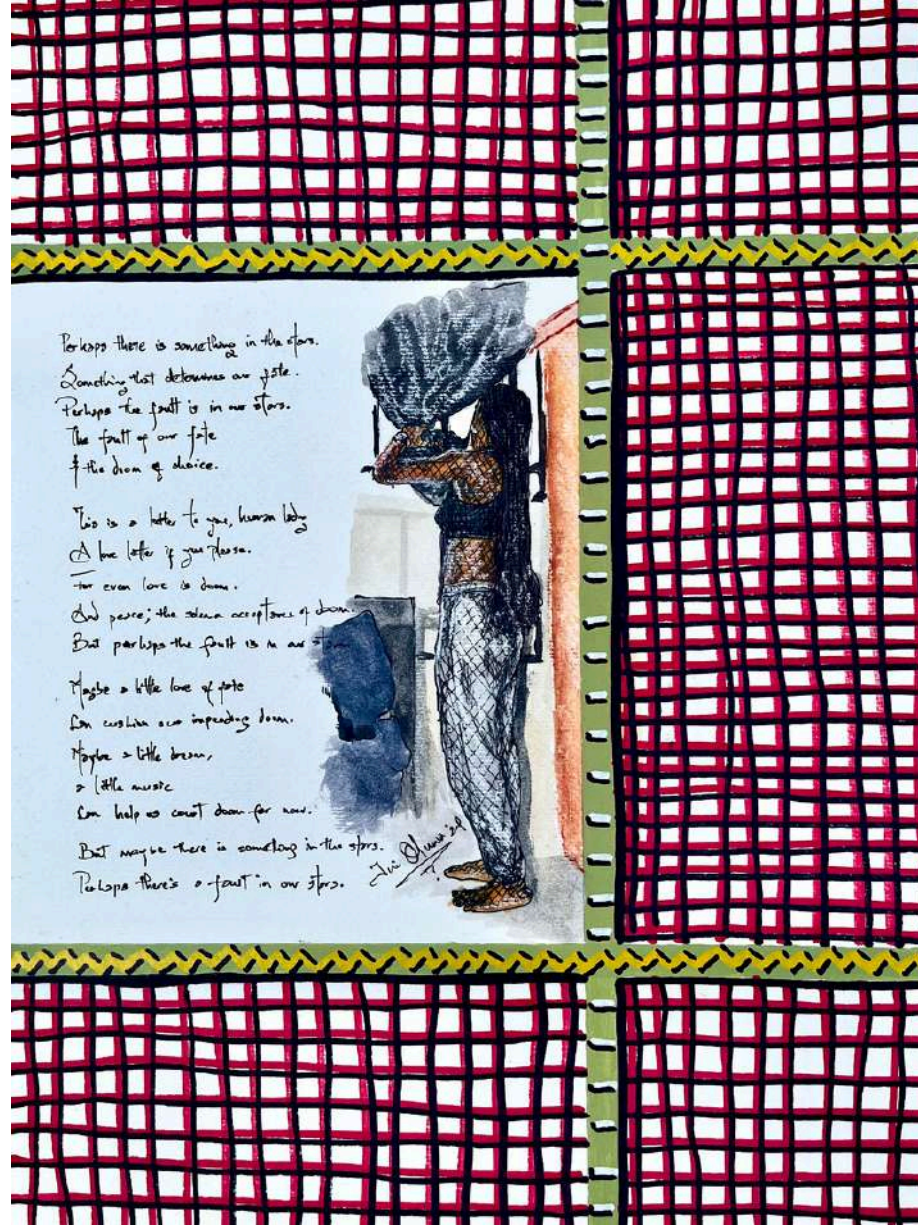 Perhaps there is something in the stars.
Something that determines our fate.
Perhaps the fault is in our stars.
The fault of our fate
& the doom of choice.
This is a letter to you, human lady
A love letter if you please.
For even love is doom.
And peace; the solemn acceptance of doom.
But perhaps the fault is in our
Maybe a little love of fate
Can cushion our impending doom.
Maybe a little dream,
a little music
Can help us doom for now.
But maybe there is something in the stars.
Perhaps there's a fault in our stars.
'24